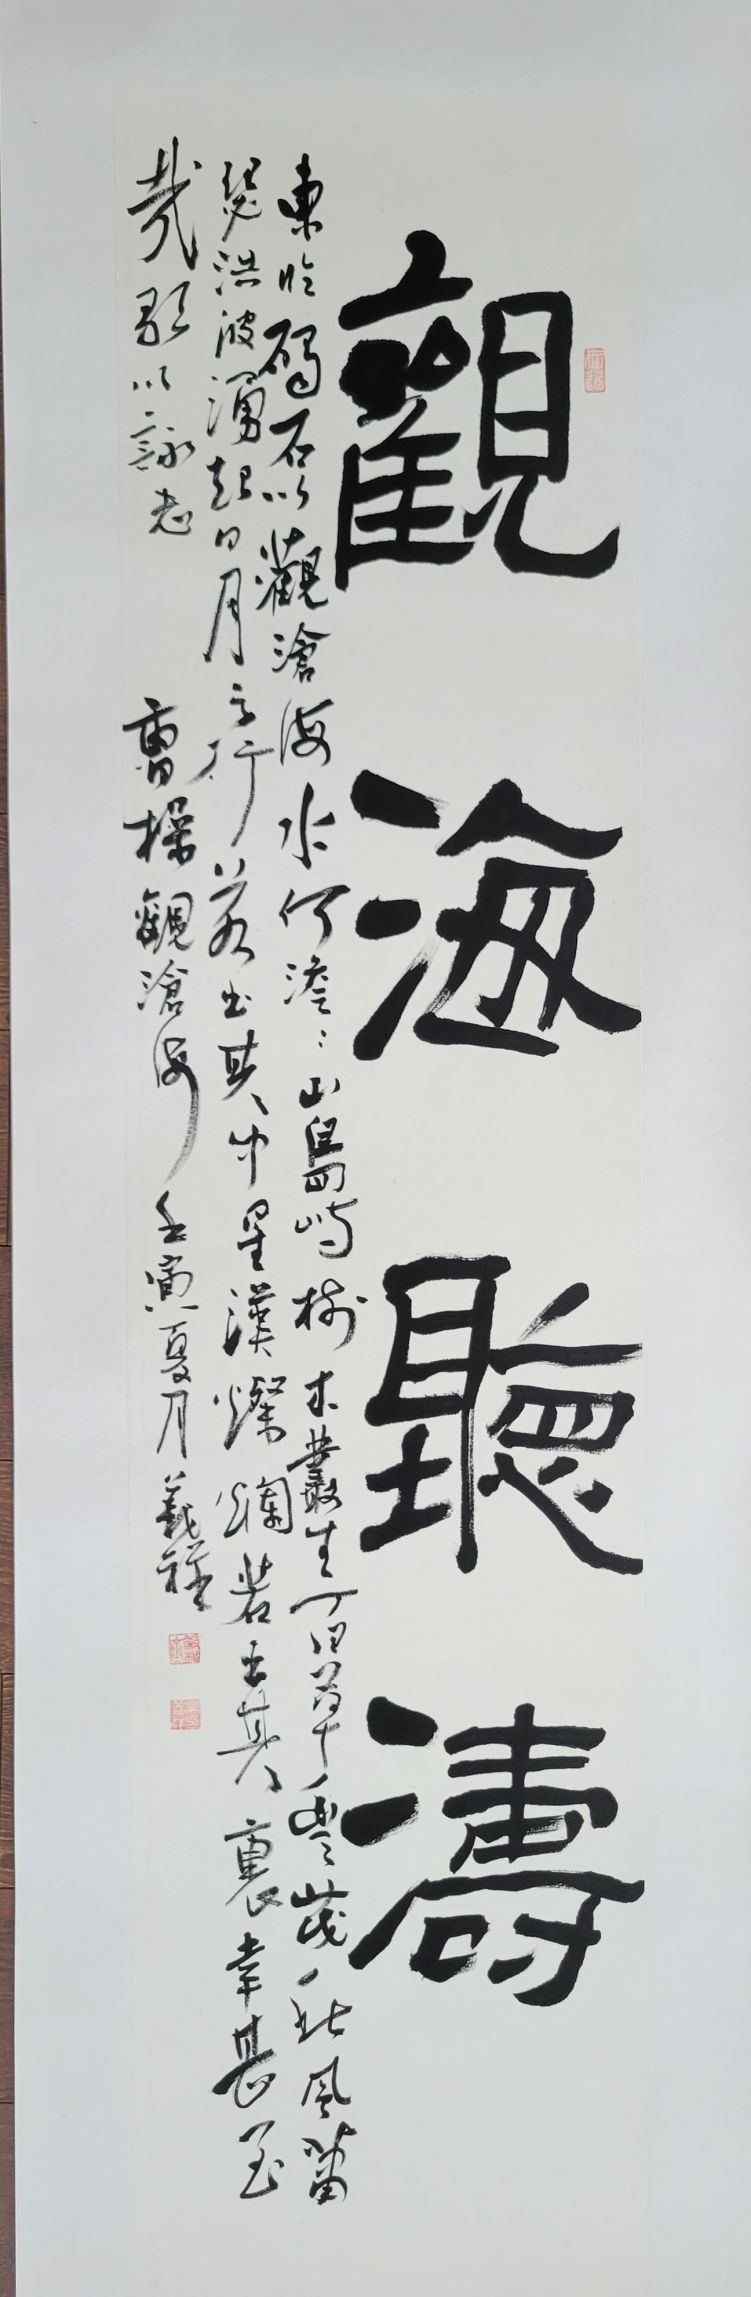 觀海聽濤
東臨碣石以觀滄海水何澹〻山島峙樹木叢生百草豐茂秋風蕭
瑟洪波湧起日月之行若出其中星漢燦爛若出其裏幸甚至
哉歌以詠志 曹操觀滄海 壬寅夏月義祥